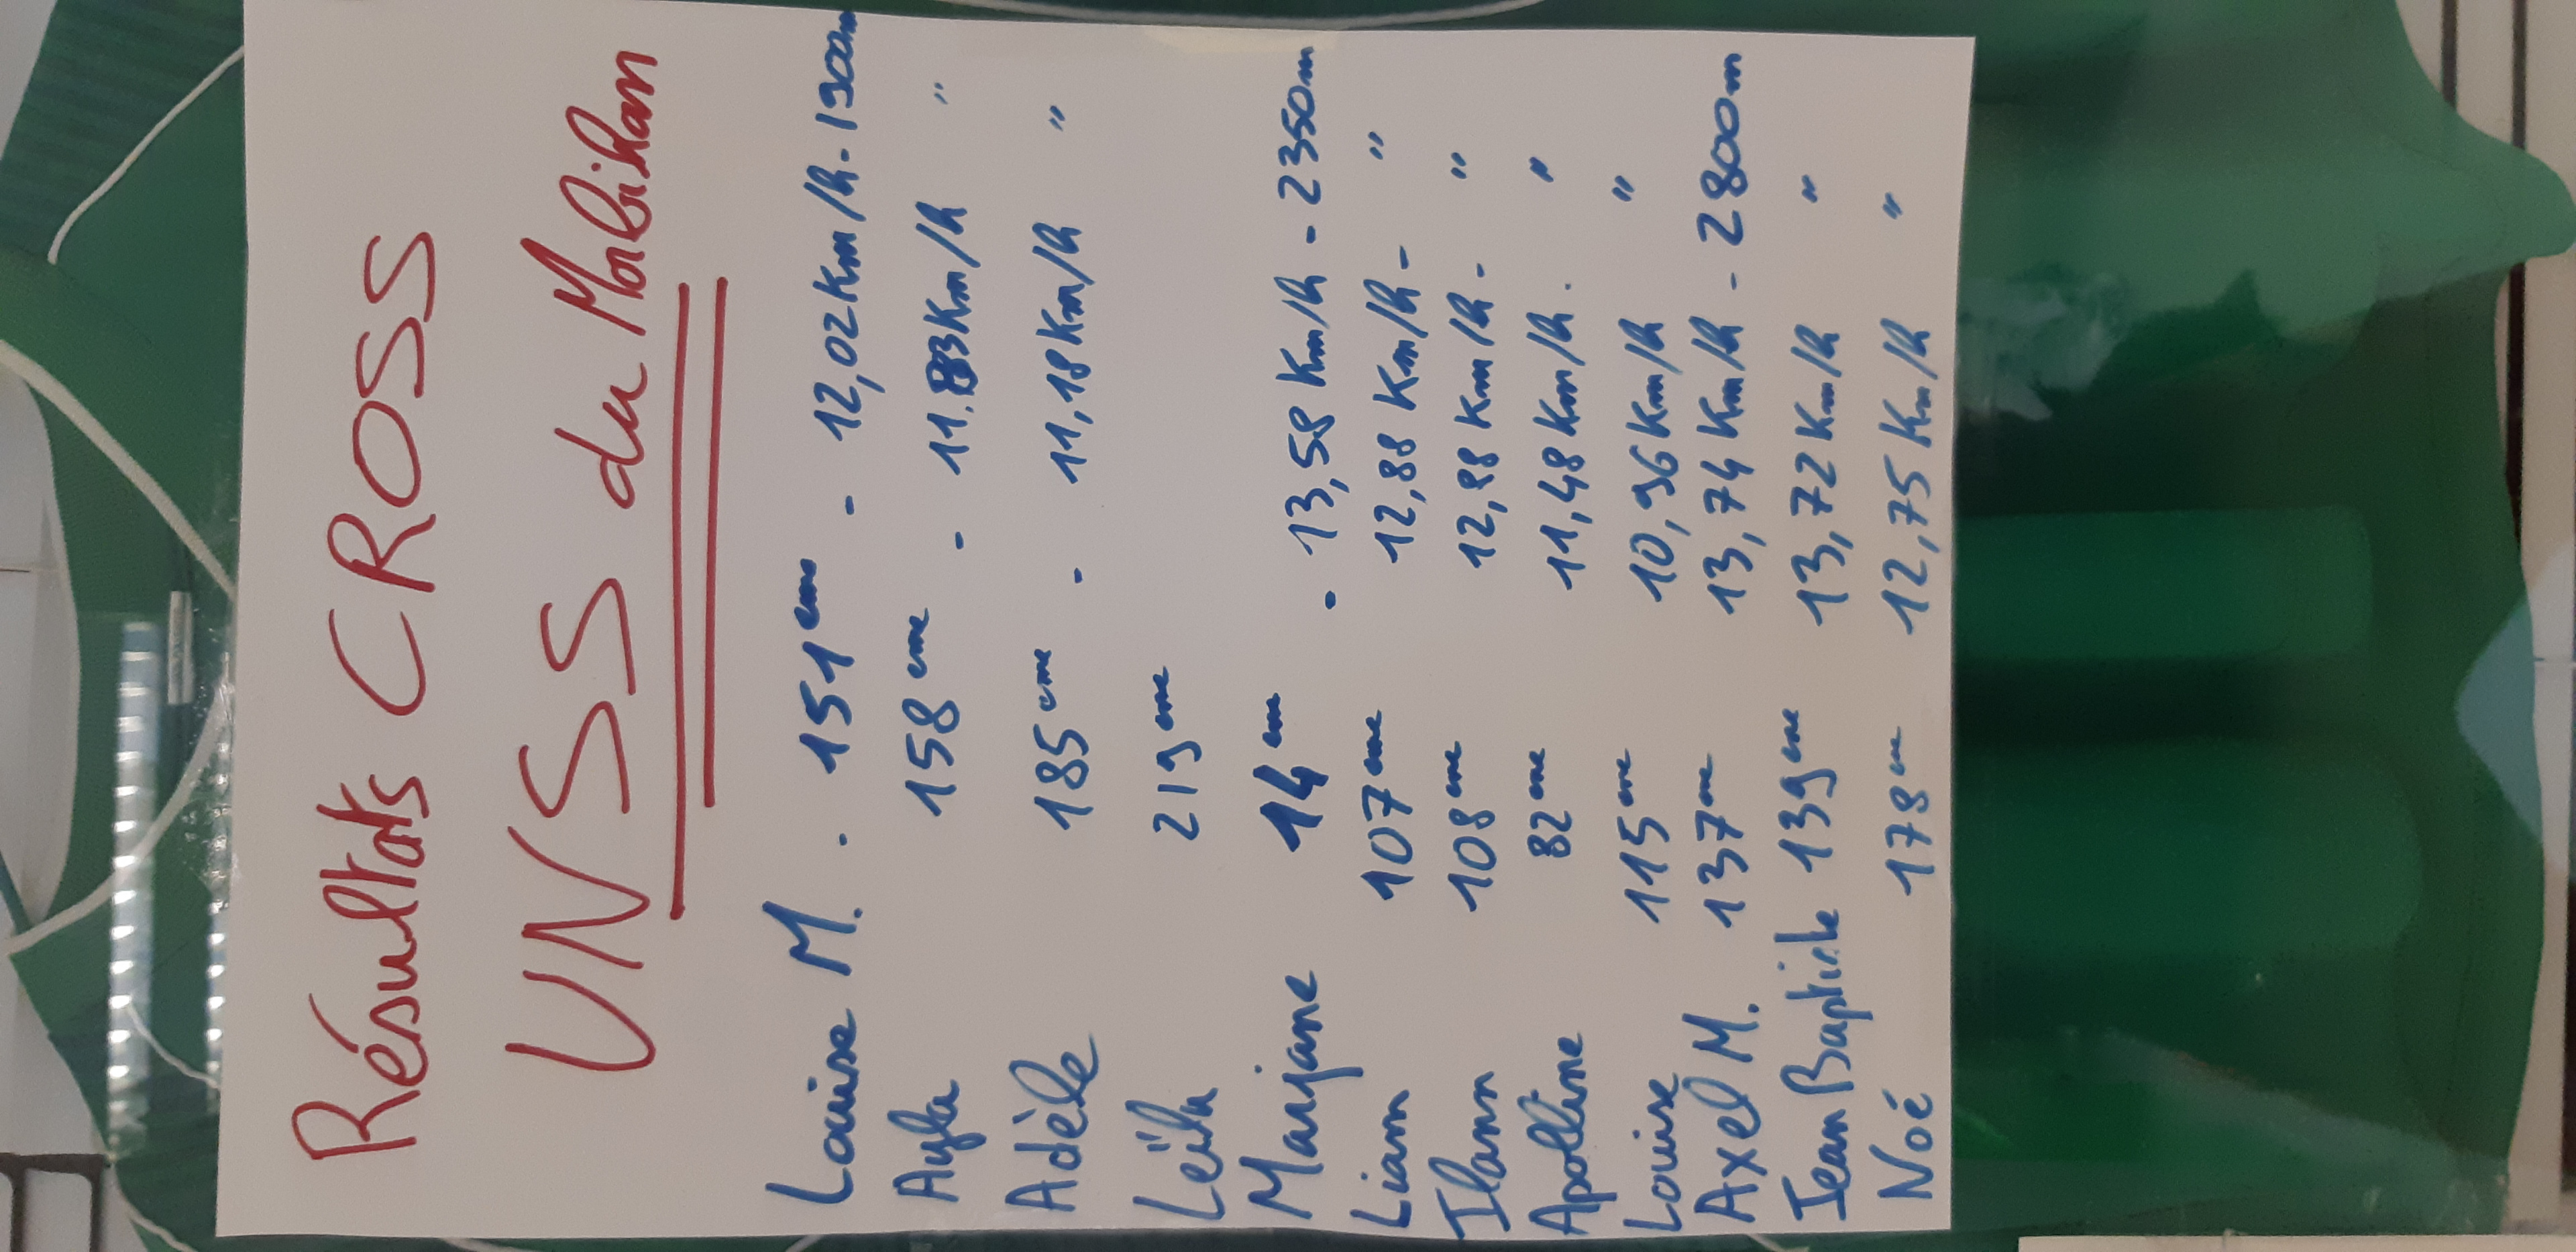 Résultats CROSS
UNSS du Morbihan
Louise M. - 151eme - 12,02 Km/h - 1900m
Ayla 158eme - 11.83 Km/h "
Adèle 185eme - 11,18 Km/h "
Leïla 219eme
Marjane 14eme - 13,58 Km/h - 2350m
Liam 107eme 12,88 Km/h - "
Ilann 108eme 12,88 Km/h - "
Apolline 82eme 11,48 Km/h. "
Louise 115eme 10,96 Km/h "
Axel M. 137eme 13,74 Km/h - 2800m
Jean Baptiste 139eme 13,72 Km/h "
Noé 178eme 12,75 Km/h "